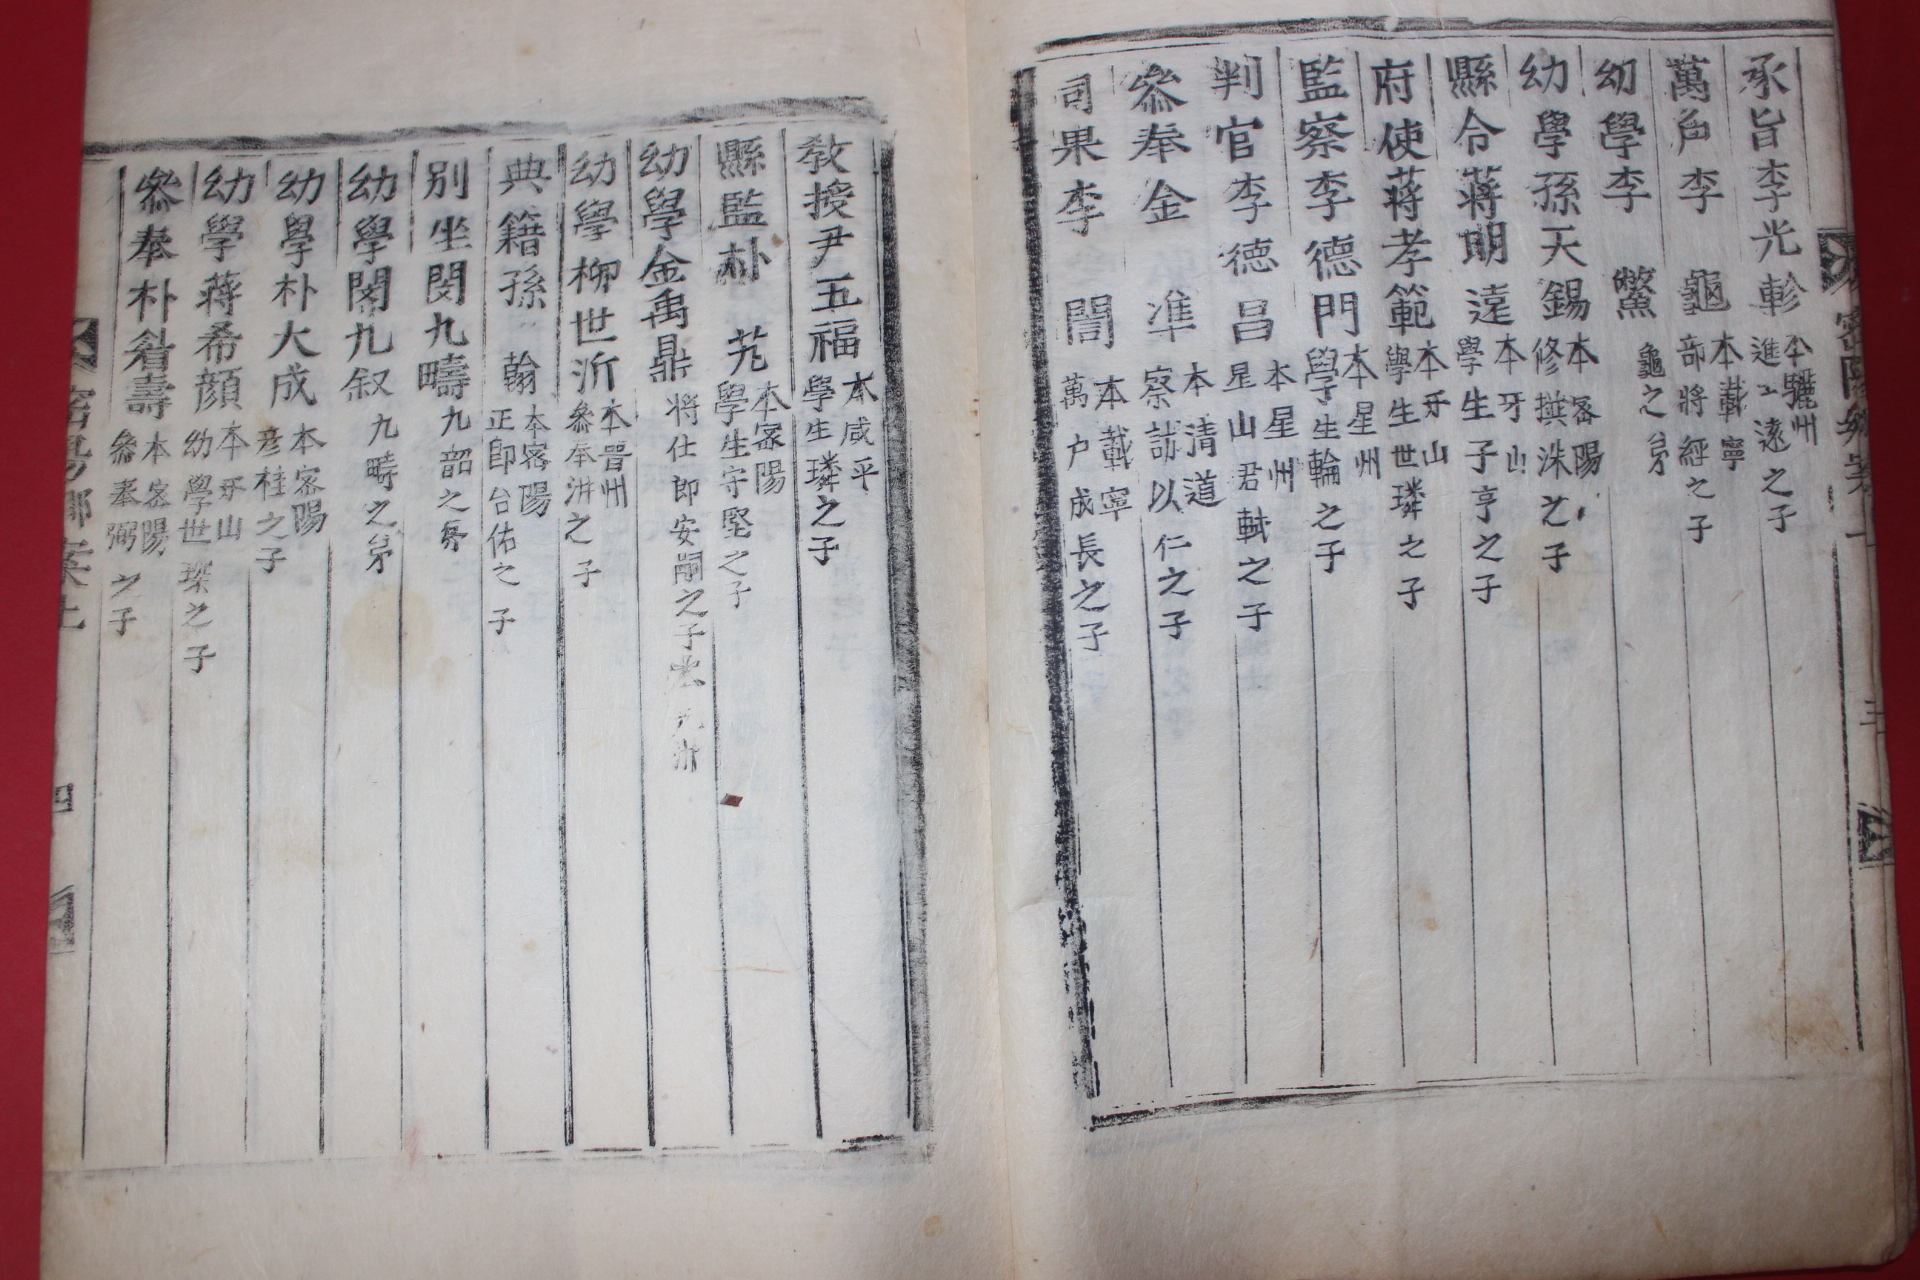 承旨李光軫 本驪州 進士遠之子
萬戶李 龜 本載寧 部將經之子
幼學李 鱉 龜之弟
幼學孫天錫 本密陽 修撰洙之子
縣令蔣明遠 本牙山 學生子亨之子
府使蔣孝範 本牙山 學生世璘之子
監察李德門 本星州 學生輪之子
判官李德昌 本星州 星山君軾之子
叅奉金 準 本清道 察訪以仁之子
司果李 誾 本載寧 萬戶成長之子
教授尹五福 本咸平 學生璘之子
縣監朴 芄 本密陽 學生守堅之子
幼學金禹鼎 將仕郎安嗣之子
幼學柳世沂 本晋州 叅奉洪之子
典籍孫 翰 本密陽 正郎台佑之子
別坐閔九疇 九韶之弟
幼學閔九叙 九疇之弟
幼學朴大成 本密陽 彦桂之子
幼學蔣希顔 本牙山 幼學世琛之子
叅奉朴眉壽 本密陽 叅奉弼之子
密陽鄉案上
四